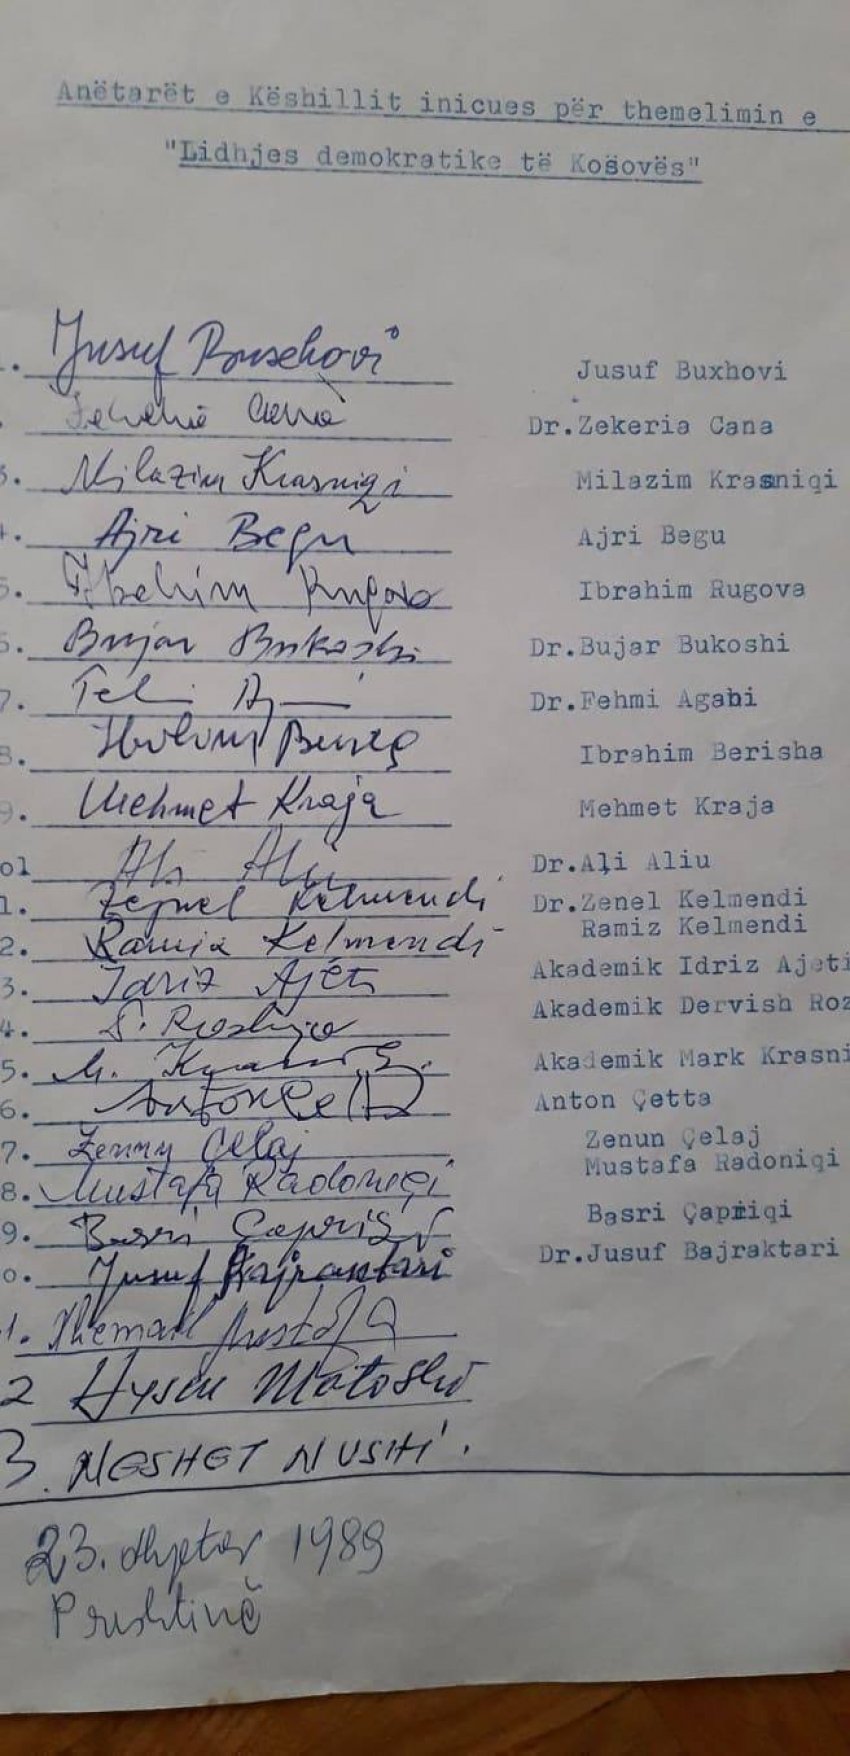 Anëtarët e Këshillit inicues për themelimin e
"Lidhjes demokratike të Kosovës"
. Jusuf Buxhovi Jusuf Buxhovi
. Zekeria Cana Dr.Zekeria Cana
3. Milazim Krasniqi Milazim Krasniqi
4. Ajri Begu Ajri Begu
5. Ibrahim Rugova Ibrahim Rugova
6. Bujar Bukoshi Dr.Bujar Bukoshi
7. Dr.Fehmi Agani
8. Ibrahim Berisha
9. Mehmet Kraja Mehmet Kraja
ol Ali Aliu Dr.Ali Aliu
1. Zejnel Kelmendi Dr.Zenel Kelmendi
2. Ramiz Kelmendi Ramiz Kelmendi
3. Idriz Ajeti Akademik Idriz Ajeti
4. Akademik Dervish Roz
5. Akademik Mark Krasni
6. Anton Çetta Anton Çetta
7. Zenun Çelaj Zenun Çelaj
8. Mustafa Radoniqi Mustafa Radoniqi
9. Basri Çapriqi Basri Çapriqi
o. Jusuf Bajraktari Dr.Jusuf Bajraktari
1. Xhemail Mustafa
2 Hysen Matoshi
3. NESHET NUSHI.
23. dhjetor 1989
Prishtinë